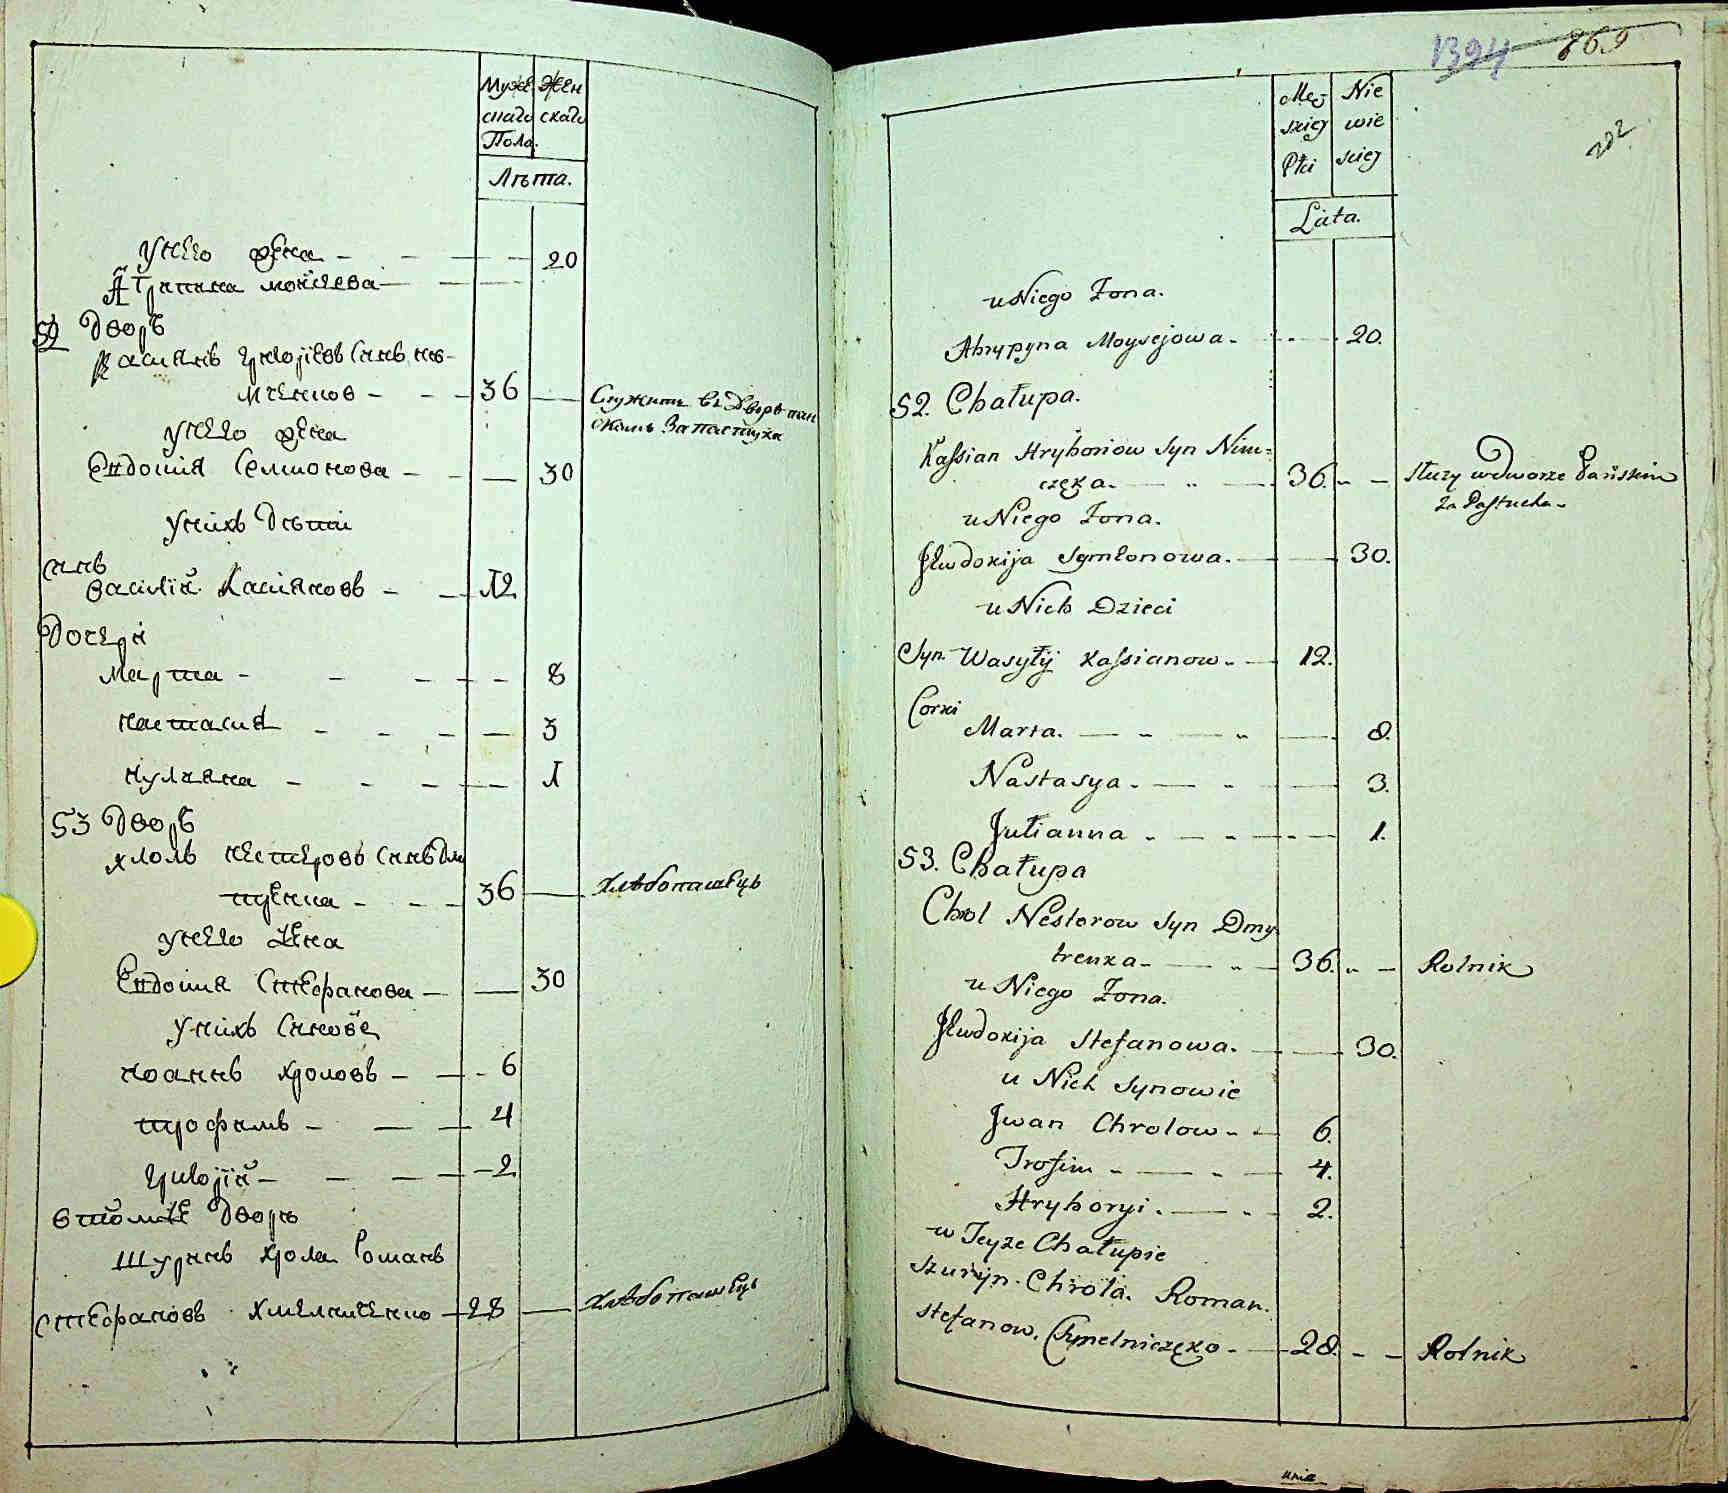 Муже Жен
скаго скаго
Пола.
Лѣта.
у него жена - - - 20
Агрипина моисеева
52 Дворъ
Касиянъ григоріевъ синъ ним-
ченков - - - 36
Служитъ въ Дворѣ пан
скомъ За пастуха
у него жена
Евдокия Семионова - - 30
у нихъ Дѣти
синъ
Василій Касияновъ - - 12
Дочери
Марта - - - 8
настасия - - - 3
иулияна - - - 1
53 Дворъ
Хролъ нестеровъ синъ Дми
тренка - - - 36 хлѣбопашецъ
у него жена
Евдокия Стефанова - 30
у нихъ Синове
иоаннъ хроловъ - - 6
трофимъ - - - 4
григорій - - - 2
в томже Дворѣ
Шуринъ хрола Романъ
стефановъ хмелниченко - 28 хлѣбопашецъ
1394 869
202
Męz- Nie
skiey wie
Płci sciey
Lata.
u Niego Zona.
Ahrypyna Moysejowa - 20.
52. Chałupa.
Kassian Hryhoriow Syn Nim-
częka - 36. służy w dworze Pańskim
za Pastucha.
u Niego Zona.
Jewdokija Symeonowa. - 30.
u Nich Dzieci
Syn. Wasyłÿ Kassianow - 12.
Corki
Marta. - 8.
Nastasya - 3.
Julianna - 1.
53. Chałupa
Chrol Nesterow Syn Dmy
trenka - 36. Rolnik
u Niego Zona.
Jewdokija Stefanowa. - 30.
u Nich Synowie
Jwan Chrolow - 6.
Trofim - 4.
Hryhoryi. - 2.
w Teyze Chałupie
Szuryn. Chrola. Roman.
Stefanow. Chmelniczęko - 28. Rolnik